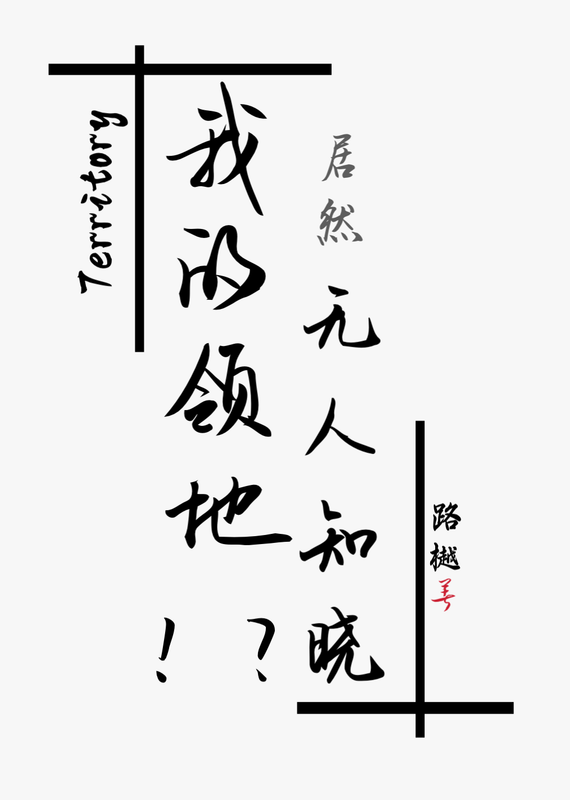 Territory
我的领地
居然无人知晓
！？
路樾著